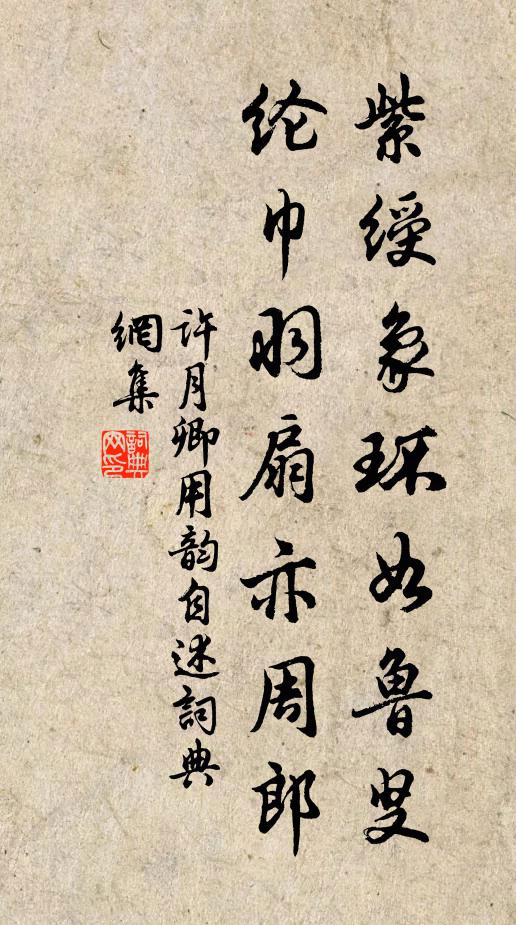 紫綬象环如魯叟
纶巾羽扇亦周郎
許月卿用韵自述詞典
網集
詞典網印